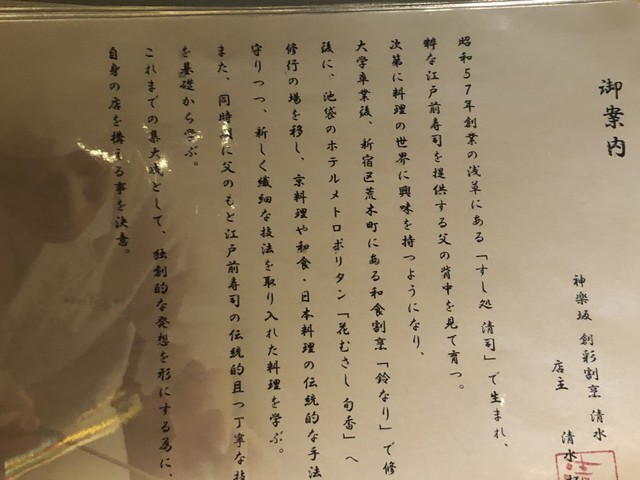 御案内
神楽坂 創彩割烹 清水
店主 清水
昭和57年創業の浅草にある「すし処 清司」で生まれ、
粋な江戸前寿司を提供する父の背中を見て育つ。
次第に料理の世界に興味を持つようになり、
大学卒業後、新宿区荒木町にある和食割烹「鈴なり」で修
後に、池袋のホテルメトロポリタン「花むさし 旬香」へ
修行の場を移し、京料理や和食・日本料理の伝統的な手法
守りつつ、新しく繊細な技法を取り入れた料理を学ぶ。
また、同時に父のもと江戸前寿司の伝統的且つ丁寧な技
を基礎から学ぶ。
これまでの集大成として、独創的な発想を形にする為に、
自身の店を構える事を決意。